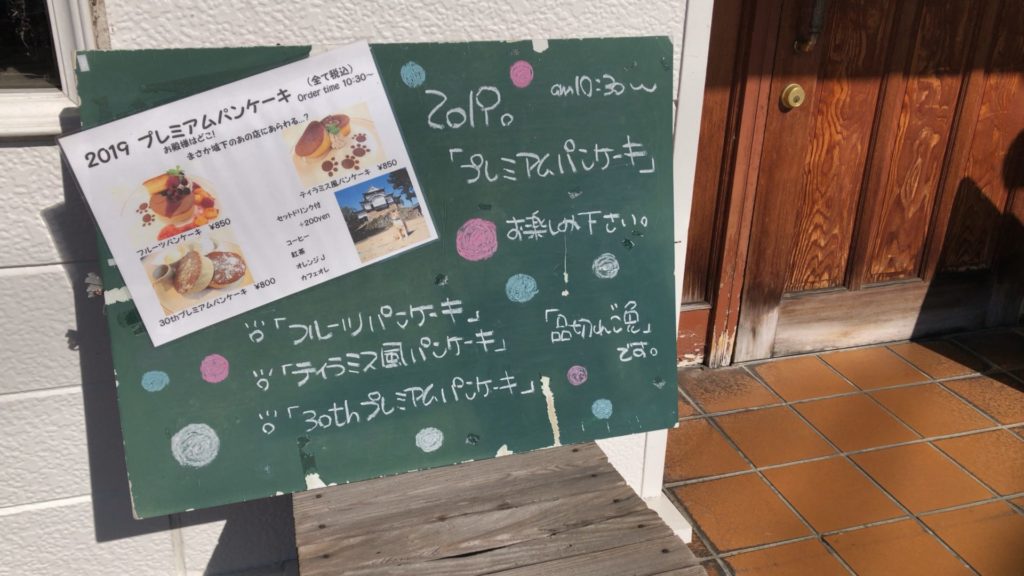 2019 プレミアムパンケーキ
(全て税込)
Order time 10:30～
お殿様はどこ!
まさか城下のあの店にあらわる...?
フルーツパンケーキ ¥850
ティラミス風パンケーキ ¥850
30thプレミアムパンケーキ ¥800
セットドリンク付
+200yen
コーヒー
紅茶
オレンジJ
カフェオレ
2019。
am10:30～
「プレミアムパンケーキ」
お楽しみ下さい。
「フルーツパンケーキ」
「ティラミス風パンケーキ」
「30thプレミアムパンケーキ」
「品切れご免」
です。